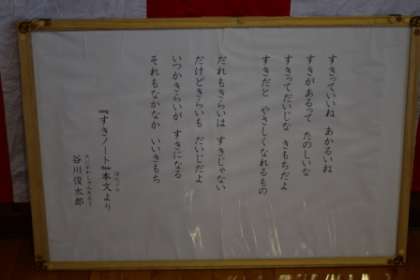 すきっていいね あかるいね
すきが あるって たのしいな
すきってだいじな きもちだよ
すきだと やさしくなれるもの
だれもきらいは すきじゃない
だけどきらいも だいじだよ
いつかきらいが すきになる
それもなかなか いいきもち
『すきノート』本文より
谷川俊太郎